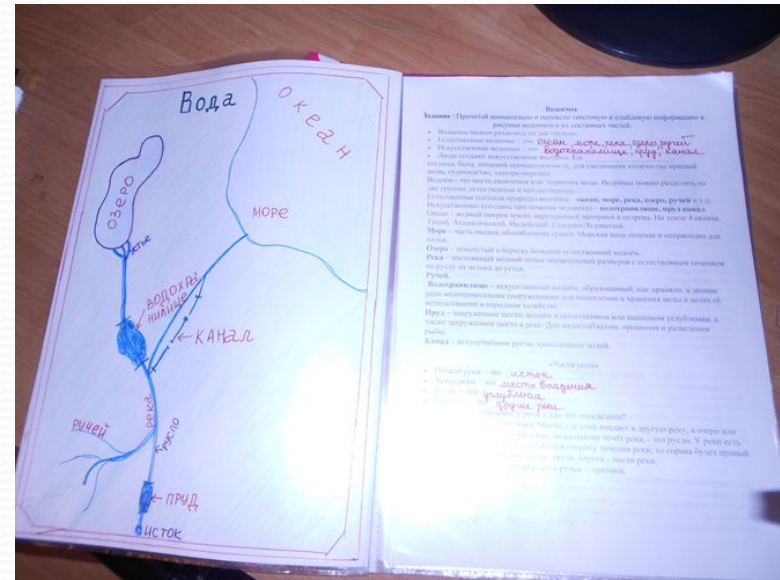 Вода
океан
озеро
море
устье
водохра
нилище
канал
река
ручей
русло
пруд
исток
Водоемы
Задание : Прочитай внимательно и переведи текстовую и слайдовую информацию в
рисунки водоемов и их составных частей.
Водоемы можно разделить на две группы:
Естественные водоемы – это океан, море, река, озеро, ручей
Искусственные водоемы – это водохранилище, пруд, канал
Люди создают искусственные водоемы для
Водоём – это место скопления или хранения воды. Водоёмы можно разделить на
две группы: естественные и искусственные.
Естественные (создала природа) водоёмы - океан, море, река, озеро, ручей и т.д.
Искусственные (созданы при помощи человека) – водохранилище, пруд канал.
Океан – водный покров земли, окружающий материки и острова. На земле 4 океана.
Тихий, Атлантический, Индийский, Северно-Ледовитый.
Море – часть океана, обособленная сушей. Морская вода соленая и непригодна для
питья.
Озеро – замкнутый в берегах большой естественный водоем.
Река – постоянный водный поток значительных размеров с естественным течением
по руслу от истока до устья.
Ручей.
Водохранилище – искусственный водоём, образованный, как правило, в долине
реки водоподпорными сооружениями для накопления и хранения воды в целях её
использования в народном хозяйстве.
Пруд – запруженное место, водоём в естественном или выкопанном углублении, а
также запруженное место в реке. Для водоснабжения, орошения и разведения
рыбы.
Канал – искусственное русло, наполненное водой.
«Части реки»
Начало реки – это исток
Устье реки – это место впадения
Русло – это углубления
другие реки